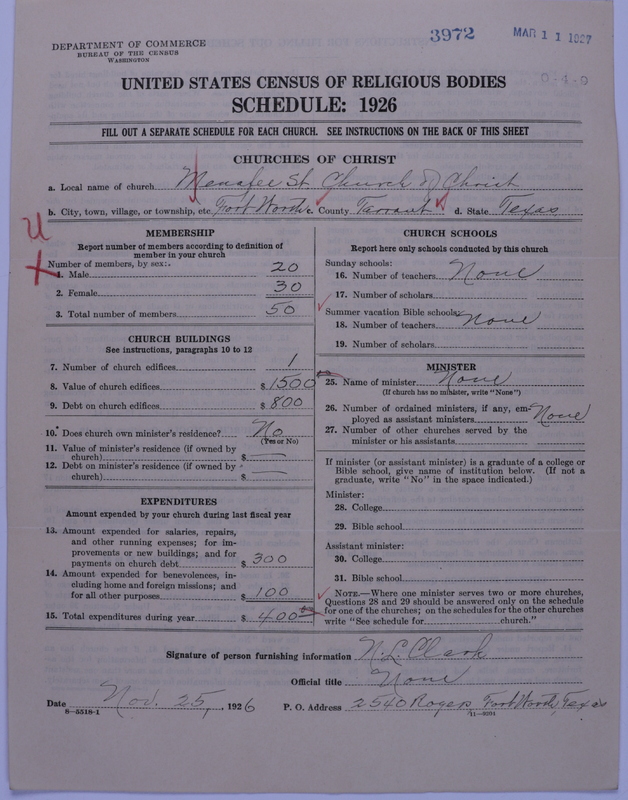 3972 MAR 11 1927
DEPARTMENT OF COMMERCE
BUREAU OF THE CENSUS
WASHINGTON
UNITED STATES CENSUS OF RELIGIOUS BODIES
SCHEDULE: 1926
FILL OUT A SEPARATE SCHEDULE FOR EACH CHURCH. SEE INSTRUCTIONS ON THE BACK OF THIS SHEET
CHURCHES OF CHRIST
a. Local name of church Menafee St. Church of Christ
b. City, town, village, or township, etc. Fort Worth c. County Tarrant d. State Texas
MEMBERSHIP
Report number of members according to definition of
member in your church
Number of members, by sex:
1. Male 20
2. Female 30
3. Total number of members 50
CHURCH BUILDINGS
See instructions, paragraphs 10 to 12
7. Number of church edifices 1
8. Value of church edifices $ 1500
9. Debt on church edifices $ 800
10. Does church own minister's residence? No
(Yes or No)
11. Value of minister's residence (if owned by
church) $ —
12. Debt on minister's residence (if owned by
church) $ —
EXPENDITURES
Amount expended by your church during last fiscal year
13. Amount expended for salaries, repairs,
and other running expenses; for im-
provements or new buildings; and for
payments on church debt $ 300
14. Amount expended for benevolences, in-
cluding home and foreign missions; and
for all other purposes $ 100
15. Total expenditures during year $ 400
CHURCH SCHOOLS
Report here only schools conducted by this church
Sunday schools:
16. Number of teachers None
17. Number of scholars
Summer vacation Bible schools:
18. Number of teachers None
19. Number of scholars
MINISTER
25. Name of minister None
(If church has no minister, write "None")
26. Number of ordained ministers, if any, em-
ployed as assistant ministers None
27. Number of other churches served by the
minister or his assistants
If minister (or assistant minister) is a graduate of a college or
Bible school, give name of institution below. (If not a
graduate, write "No" in the space indicated.)
Minister:
28. College
29. Bible school
Assistant minister:
30. College
31. Bible school
NOTE.—Where one minister serves two or more churches,
Questions 28 and 29 should be answered only on the schedule
for one of the churches; on the schedules for the other churches
write "See schedule for church."
Signature of person furnishing information N. L. Clark
Official title None
Date Nov. 25, 1926 P. O. Address 2540 Rogers, Fort Worth, Texas
8—5518-1 11—9294